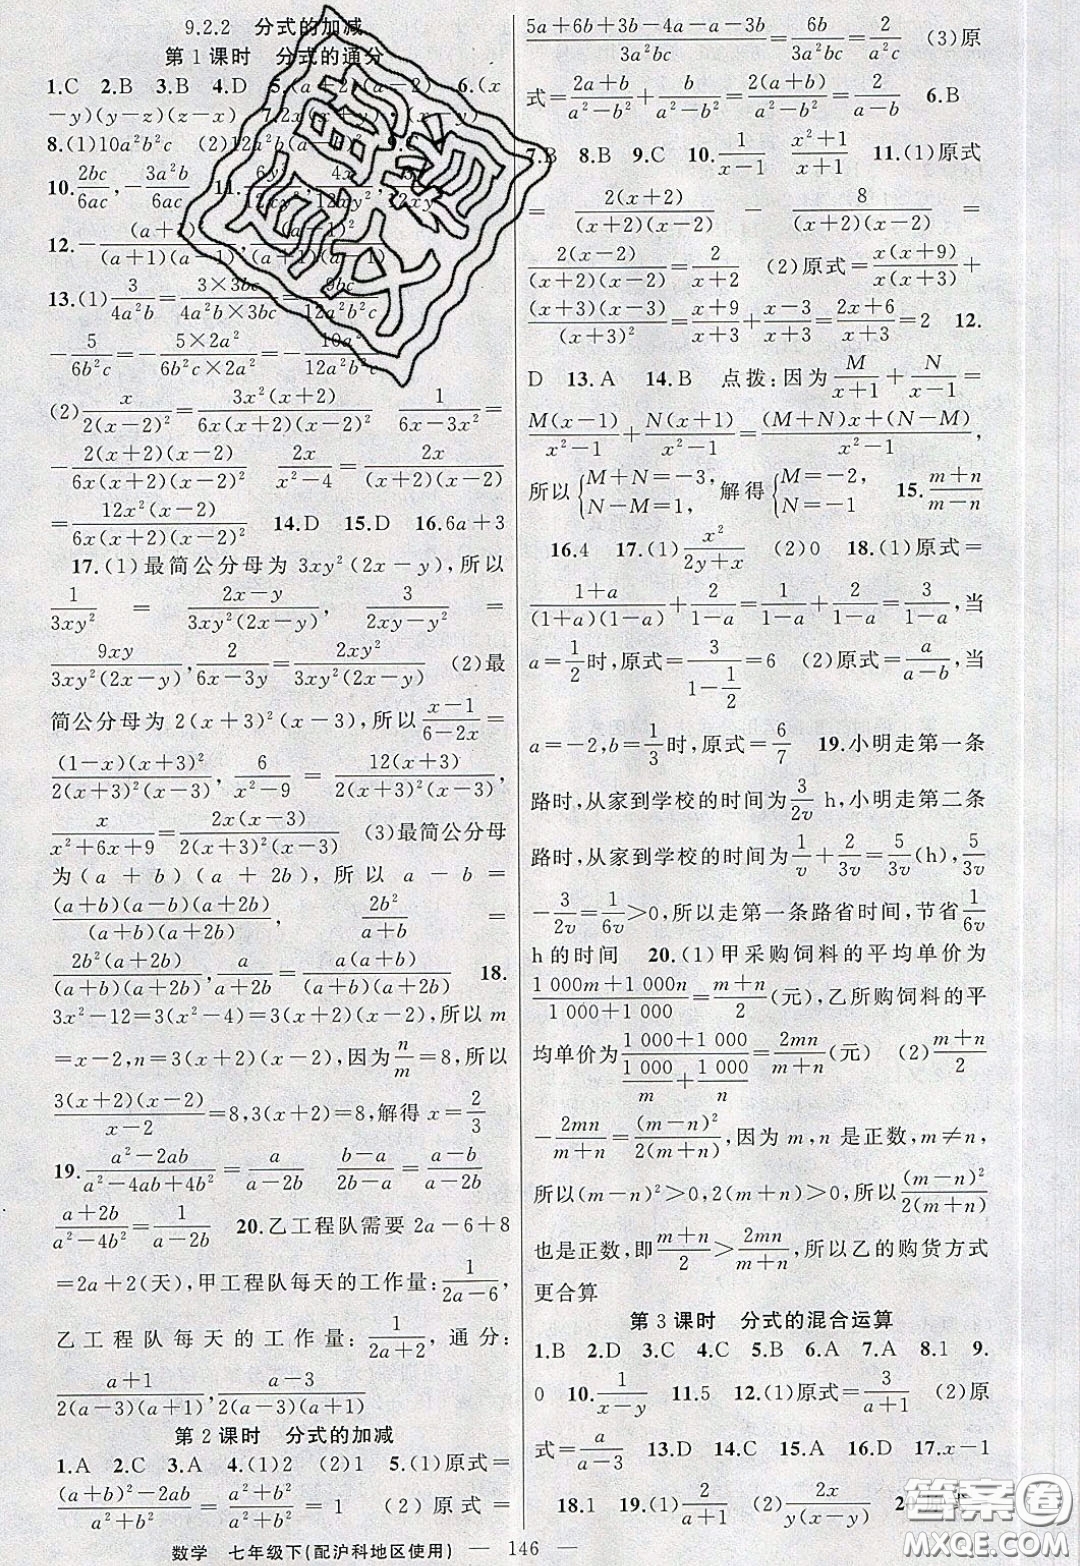 9.2.2　分式的加减
第1课时　分式的通分
1.C　2.B　3.B　4.D　5.(a+2)(a-2)　6.(x
-y)(y-z)(z-x)　7.2x(x+y)(x-y)
8.(1)10a²b²c　(2)12a²b
10. 2bc/6ac, -3a²b/6ac　11. 6y/12xy², 4x/12xy²,
12.-(a+1)/(a+1)(a-1), (a-1)²/(a+1)(a-1)
13.(1) 3/4a²b = 3×3bc/4a²b×3bc = 9bc/12a²b²c
-5/6b²c = -5×2a²/6b²c×2a² = -10a²/12a²b²c
(2) x/2(x-2)² = 3x²(x+2)/6x(x+2)(x-2)²　1/6x-3x² =
-2(x+2)(x-2)/6x(x+2)(x-2)²　2x/x²-4 = 2x/(x+2)(x-2)
= 12x²(x-2)/6x(x+2)(x-2)²　14.D　15.D　16.6a+3
17.(1)最简公分母为3xy²(2x-y),所以
1/3xy² = 2x-y/3xy²(2x-y), 3/2xy-y² =
9xy/3xy²(2x-y), 2/6x-3y = 2xy²/3xy²(2x-y)　(2)最
简公分母为2(x+3)²(x-3),所以 x-1/6-2x =
(1-x)(x+3)²/2(x+3)²(x-3), 6/x²-9 = 12(x+3)/2(x+3)²(x-3),
x/x²+6x+9 = 2x(x-3)/2(x+3)²(x-3)　(3)最简公分母
为(a+b)(a+2b),所以a-b=
(a+b)(a-b)(a+2b)/(a+b)(a+2b), 2b²/a+b =
2b²(a+2b)/(a+b)(a+2b), a/a+2b = a(a+b)/(a+b)(a+2b)　18.
3x²-12=3(x²-4)=3(x+2)(x-2),所以m
=x-2,n=3(x+2)(x-2),因为 n/m =8,所以
3(x+2)(x-2)/x-2 =8,3(x+2)=8,解得x= 2/3
19. a²-2ab/a²-4ab+4b² = a/a-2b　b-a/2b-a = a-b/a-2b
a+2b/a²-4b² = 1/a-2b　20.乙工程队需要2a-6+8
=2a+2(天),甲工程队每天的工作量: 1/2a-6,
乙工程队每天的工作量: 1/2a+2,通分:
a+1/2(a-3)(a+1), a-3/2(a-3)(a+1)
第2课时　分式的加减
1.A　2.C　3.A　4.(1)2　(2)1　5.(1)原式=
(a+b)²-2ab/a²+b² = a²+b²/a²+b² = 1　(2)原式=
5a+6b+3b-4a-a-3b/3a²bc = 6b/3a²bc = 2/a²c　(3)原
式= 2a+b/a²-b² + b/a²-b² = 2a+2b/a²-b² = 2/a-b　6.B
7.B　8.B　9.C　10. 1/x-1　x²+1/x+1　11.(1)原式
= 2(x+2)/(x+2)(x-2) - 8/(x+2)(x-2) =
2(x-2)/(x+2)(x-2) = 2/x+2　(2)原式= x(x+9)/(x+3)² +
(x+3)(x-3)/(x+3)² = x+9/x+3 + x-3/x+3 = 2x+6/x+3 =2　12.
D　13.A　14.B　点拨:因为 M/x+1 + N/x-1 =
M(x-1)/x²-1 + N(x+1)/x²-1 = (M+N)x+(N-M)/x²-1,
所以{M+N=-3, N-M=1, 解得{M=-2, N=-1.　15. m+n/m-n
16.4　17.(1) x²/2y+x　(2)0　18.(1)原式=
1+a/(1+a)(1-a) + 2/1-a = 1/1-a + 2/1-a = 3/1-a,当
a= 1/2 时,原式= 3/1-1/2 =6　(2)原式= a/a-b,当
a=-2,b= 1/3 时,原式= 6/7　19.小明走第一条
路时,从家到学校的时间为 3/2v h,小明走第二条
路时,从家到学校的时间为 1/v + 2/3v = 5/3v (h), 5/3v
- 3/2v = 1/6v >0,所以走第一条路省时间,节省 1/6v
h的时间　20.(1)甲采购饲料的平均单价为
1 000m+1 000n/1 000+1 000 = m+n/2 (元),乙所购饲料的平
均单价为 1 000+1 000/(1 000/m + 1 000/n) = 2mn/m+n (元)　(2) m+n/2
- 2mn/m+n = (m-n)²/2(m+n),因为m,n是正数,m≠n,
所以(m-n)²>0,2(m+n)>0,所以 (m-n)²/2(m+n)
也是正数,即 m+n/2 > 2mn/m+n,所以乙的购货方式
更合算
第3课时　分式的混合运算
1.B　2.D　3.C　4.C　5.B　6.A　7.A　8.1　9.
0　10. 1/x-y　11.5　12.(1)原式= 3/a+1　(2)原
式= a/a-3　13.D　14.A　15.A　16.D　17.x-1
18.1　19.(1) 2/a+1　(2) 2x/x-y
数学　七年级下(配沪科地区使用)　— 146 —
答案圈
MXQE.COM